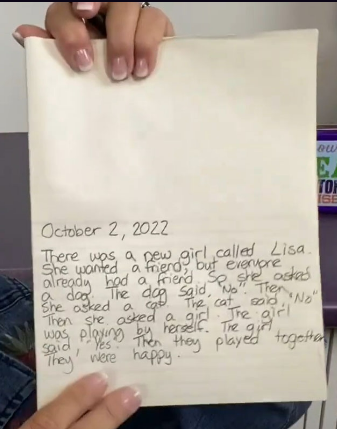 October 2, 2022
There was a new girl called Lisa.
She wanted a friend, but everyone
already had a friend. So she asked
a dog. The dog said "No". Then,
she asked a cat. The cat said, "No"
Then she asked a girl. The girl
was playing by herself. The girl
said "Yes". Then they played together.
They were happy.